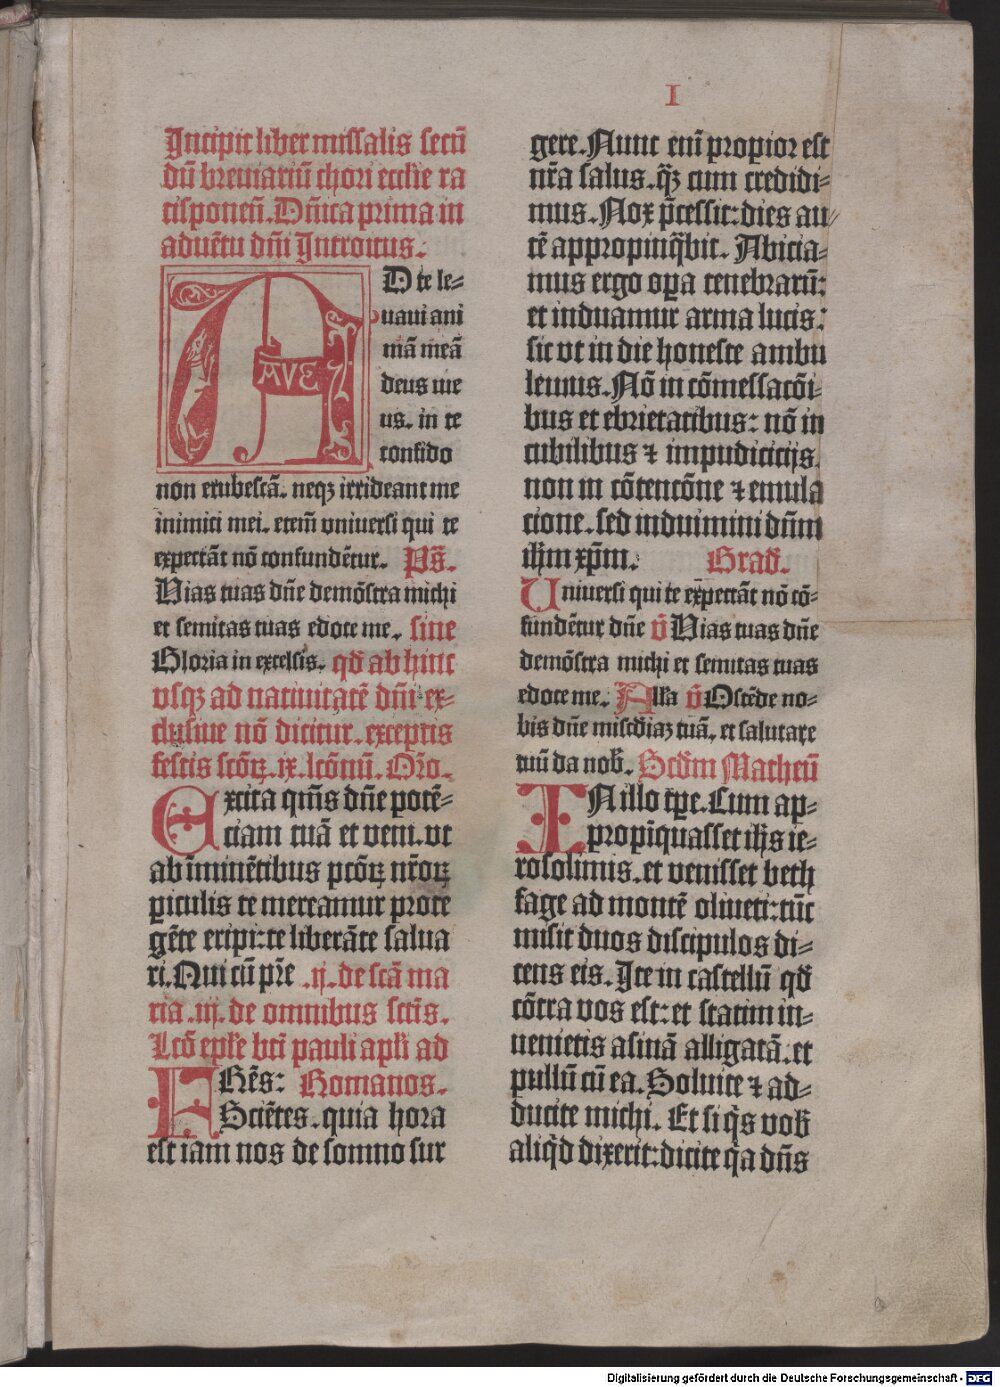 I
Incipit liber missalis secū
dū breviariū chori eccl̄ie ra
tisponeñ. Dñica prima in
advētu dñi Introitus.
AVE
AD te le-
uaui ani
mā meā
deus me
us. in te
confido
non erubescā. neqꝫ irrideant me
inimici mei. etem̄ vniuersi qui te
expectāt nō confundētur. Ps̄.
Vias tuas dn̄e demōstra michi
et semitas tuas edoce me. sine
Gloria in excelsis. qd̄ ab hinc
vsqꝫ ad natiuitatē dn̄i ex-
clusiue nō dicitur. exceptis
festis sctōꝝ .ix. lcōnū. Or̄o.
Excita qm̄s dn̄e potē-
ciam tuā et veni. vt
ab īminētibus pctōꝝ nr̄oꝝ
ꝑiculis te mereamur prote
gēte eripi: te liberāte salua
ri. Qui cū pr̄e .ij. de scā ma
ria .iij. de omnibus sctīs.
Lcō epl̄e bt̄i pauli apl̄i ad
FRēs: Romanos.
Sciētes. quia hora
est iam nos de somno sur
gere. Nunc eni̅ propior est
nr̄a salus. qꝫ̄ cum credidi-
mus. Nox p̄cessit: dies au-
tē appropinq̄bit. Abicia-
mus ergo oꝑa tenebrarū:
et induamur arma lucis:
sic vt in die honeste ambu
lemus. Nō in cōmessacōi-
bus et ebrietatibus: nō in
cubilibus ⁊ impudicicijs.
non in cōtencōne ⁊ emula
cione. sed induimini dn̄m
ih̄m xp̄m. Grad̄.
Uniuersi qui te expectāt nō cō-
fundētur dn̄e v̄ Vias tuas dn̄e
demōstra michi et semitas tuas
edoce me. All̄a v̄ Ostēde no-
bis dn̄e mis̄cdiaꝫ tuā. et salutare
tuū da nob̄. Scd̄m Matheū
IN illo tp̄e. Cum ap-
propīquasset ih̄s ie-
rosolimis. et venisset beth
fage ad montē oliueti: tūc
misit duos discipulos di-
cens eis. Ite in castellū qd̄
cōtra vos est: et statim in-
uenietis asinā alligatā. et
pullū cū ea. Soluite ⁊ ad-
ducite michi. Et si q̄s vob̄
aliq̄d dixerit: dicite q̄a dn̄s
Digitalisierung gefördert durch die Deutsche Forschungsgemeinschaft - DFG